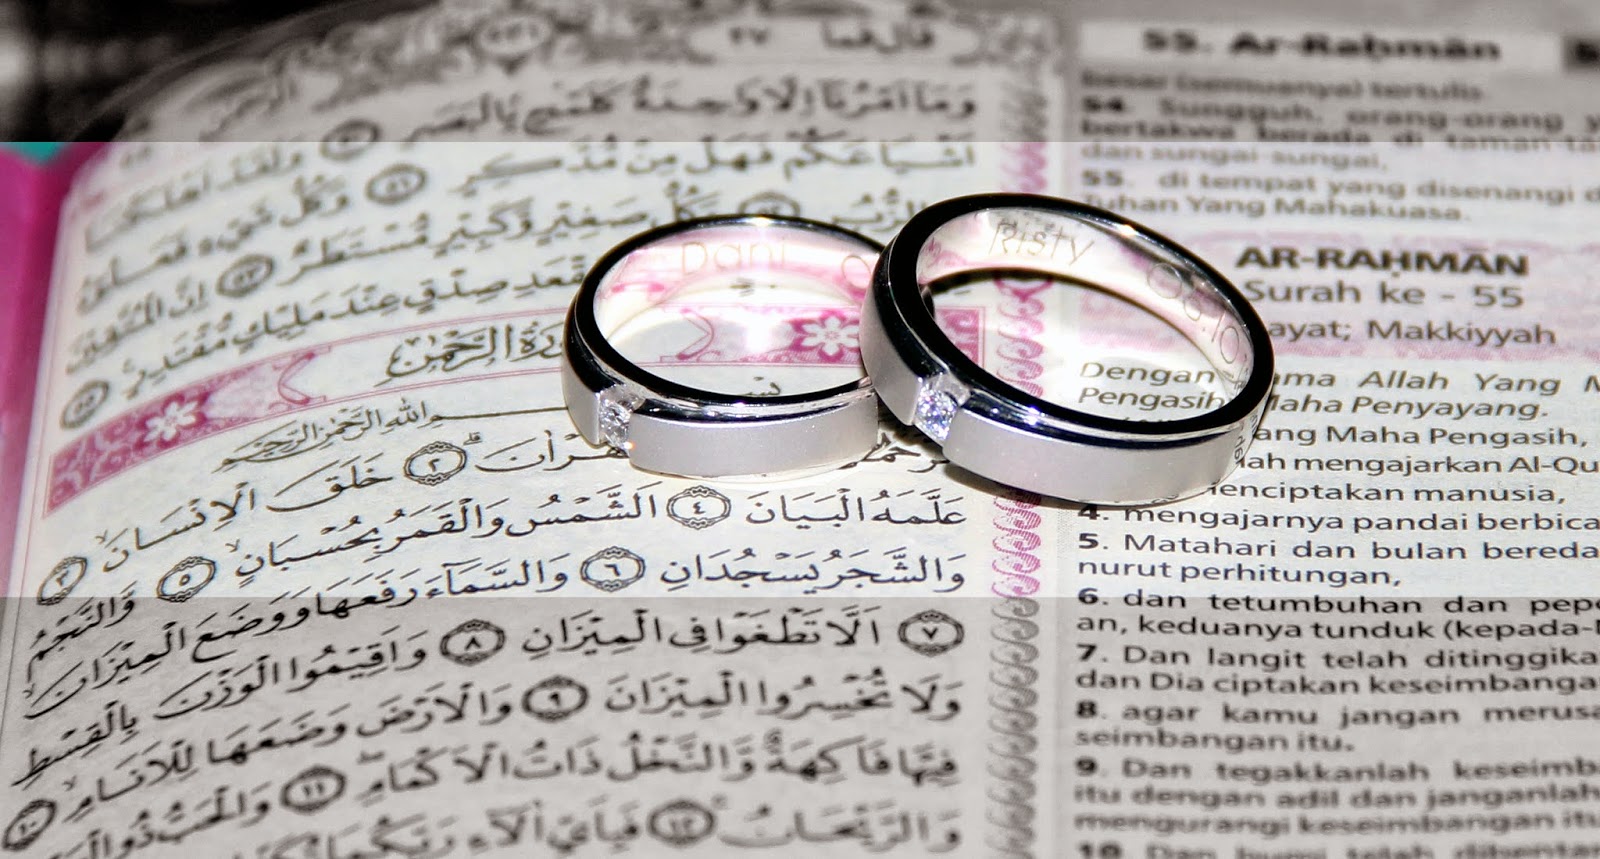 قال فما ٢٧
وَمَا أَمْرُنَا إِلَّا وَاحِدَةٌ كَلَمْحٍ بِالْبَصَرِ ٥٠ وَلَقَدْ أَهْلَكْنَا
أَشْيَاعَكُمْ فَهَلْ مِنْ مُدَّكِرٍ ٥١ وَكُلُّ شَيْءٍ فَعَلُوهُ
الزُّبُرِ ٥٢ وَكُلُّ صَغِيرٍ وَكَبِيرٍ مُسْتَطَرٌ ٥٣ إِنَّ الْمُتَّقِينَ
مَقْعَدِ صِدْقٍ عِنْدَ مَلِيكٍ مُقْتَدِرٍ ٥٥
سُورَةُ الرَّحْمٰنِ
بِسْمِ اللهِ الرَّحْمٰنِ الرَّحِيمِ
الْقُرْاٰنَ ٢ خَلَقَ الْاِنْسَانَ ٣
عَلَّمَهُ الْبَيَانَ ٤ اَلشَّمْسُ وَالْقَمَرُ بِحُسْبَانٍ ٥ وَّالنَّجْمُ
وَالشَّجَرُ يَسْجُدَانِ ٦ وَالسَّمَاۤءَ رَفَعَهَا وَوَضَعَ الْمِيْزَانَ
٧ اَلَّا تَطْغَوْا فِى الْمِيْزَانِ ٨ وَاَقِيْمُوا الْوَزْنَ بِالْقِسْطِ
وَلَا تُخْسِرُوا الْمِيْزَانَ ٩ وَالْاَرْضَ وَضَعَهَا لِلْاَنَامِ ١٠
فِيْهَا فَاكِهَةٌ وَّالنَّخْلُ ذَاتُ الْاَكْمَامِ ١١ وَالْحَبُّ ذُو
وَالرَّيْحَانُ ١٢ فَبِاَيِّ اٰلَاۤءِ رَبِّكُمَا
Dani
Risty 08.10
55. Ar-Raḥmān
besar (semuanya) tertulis.
54. Sungguh, orang-orang
bertakwa berada di taman
dan sungai-sungai,
55. di tempat yang disenangi
Tuhan Yang Mahakuasa.
AR-RAḤMĀN
Surah ke - 55
ayat; Makkiyyah
Dengan Allah Yang
Pengasih, Maha Penyayang.
Maha Pengasih,
mengajarkan
manusia,
4. mengajarnya pandai
5. Matahari dan bulan
nurut perhitungan,
6. dan tetumbuhan dan
an, keduanya tunduk
7. Dan langit telah
dan Dia ciptakan
8. agar kamu jangan
seimbangan itu.
9. Dan tegakkanlah
itu dengan adil dan janganlah
mengurangi keseimbangan itu
10. Dan bumi telah